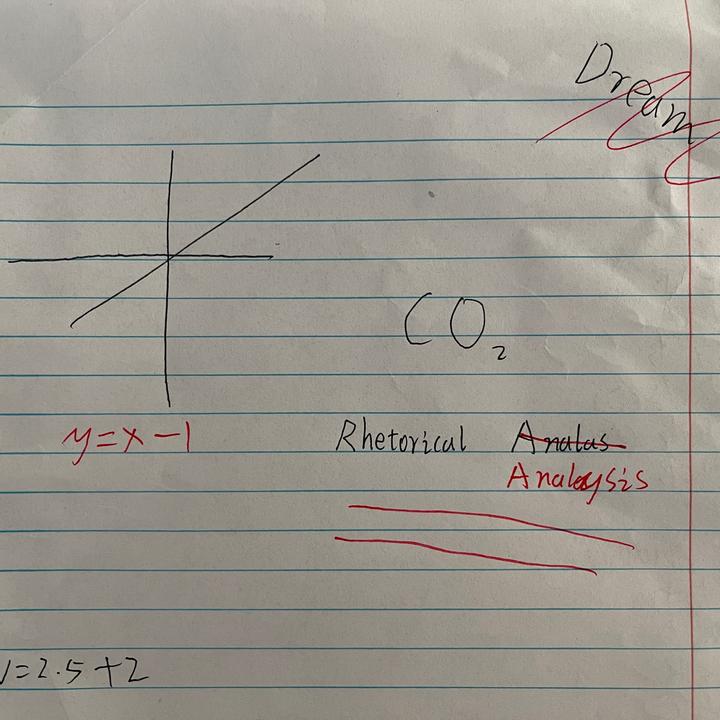 Dream
CO₂
y=x-1
Rhetorical Analas
Analysis
=2.5+2